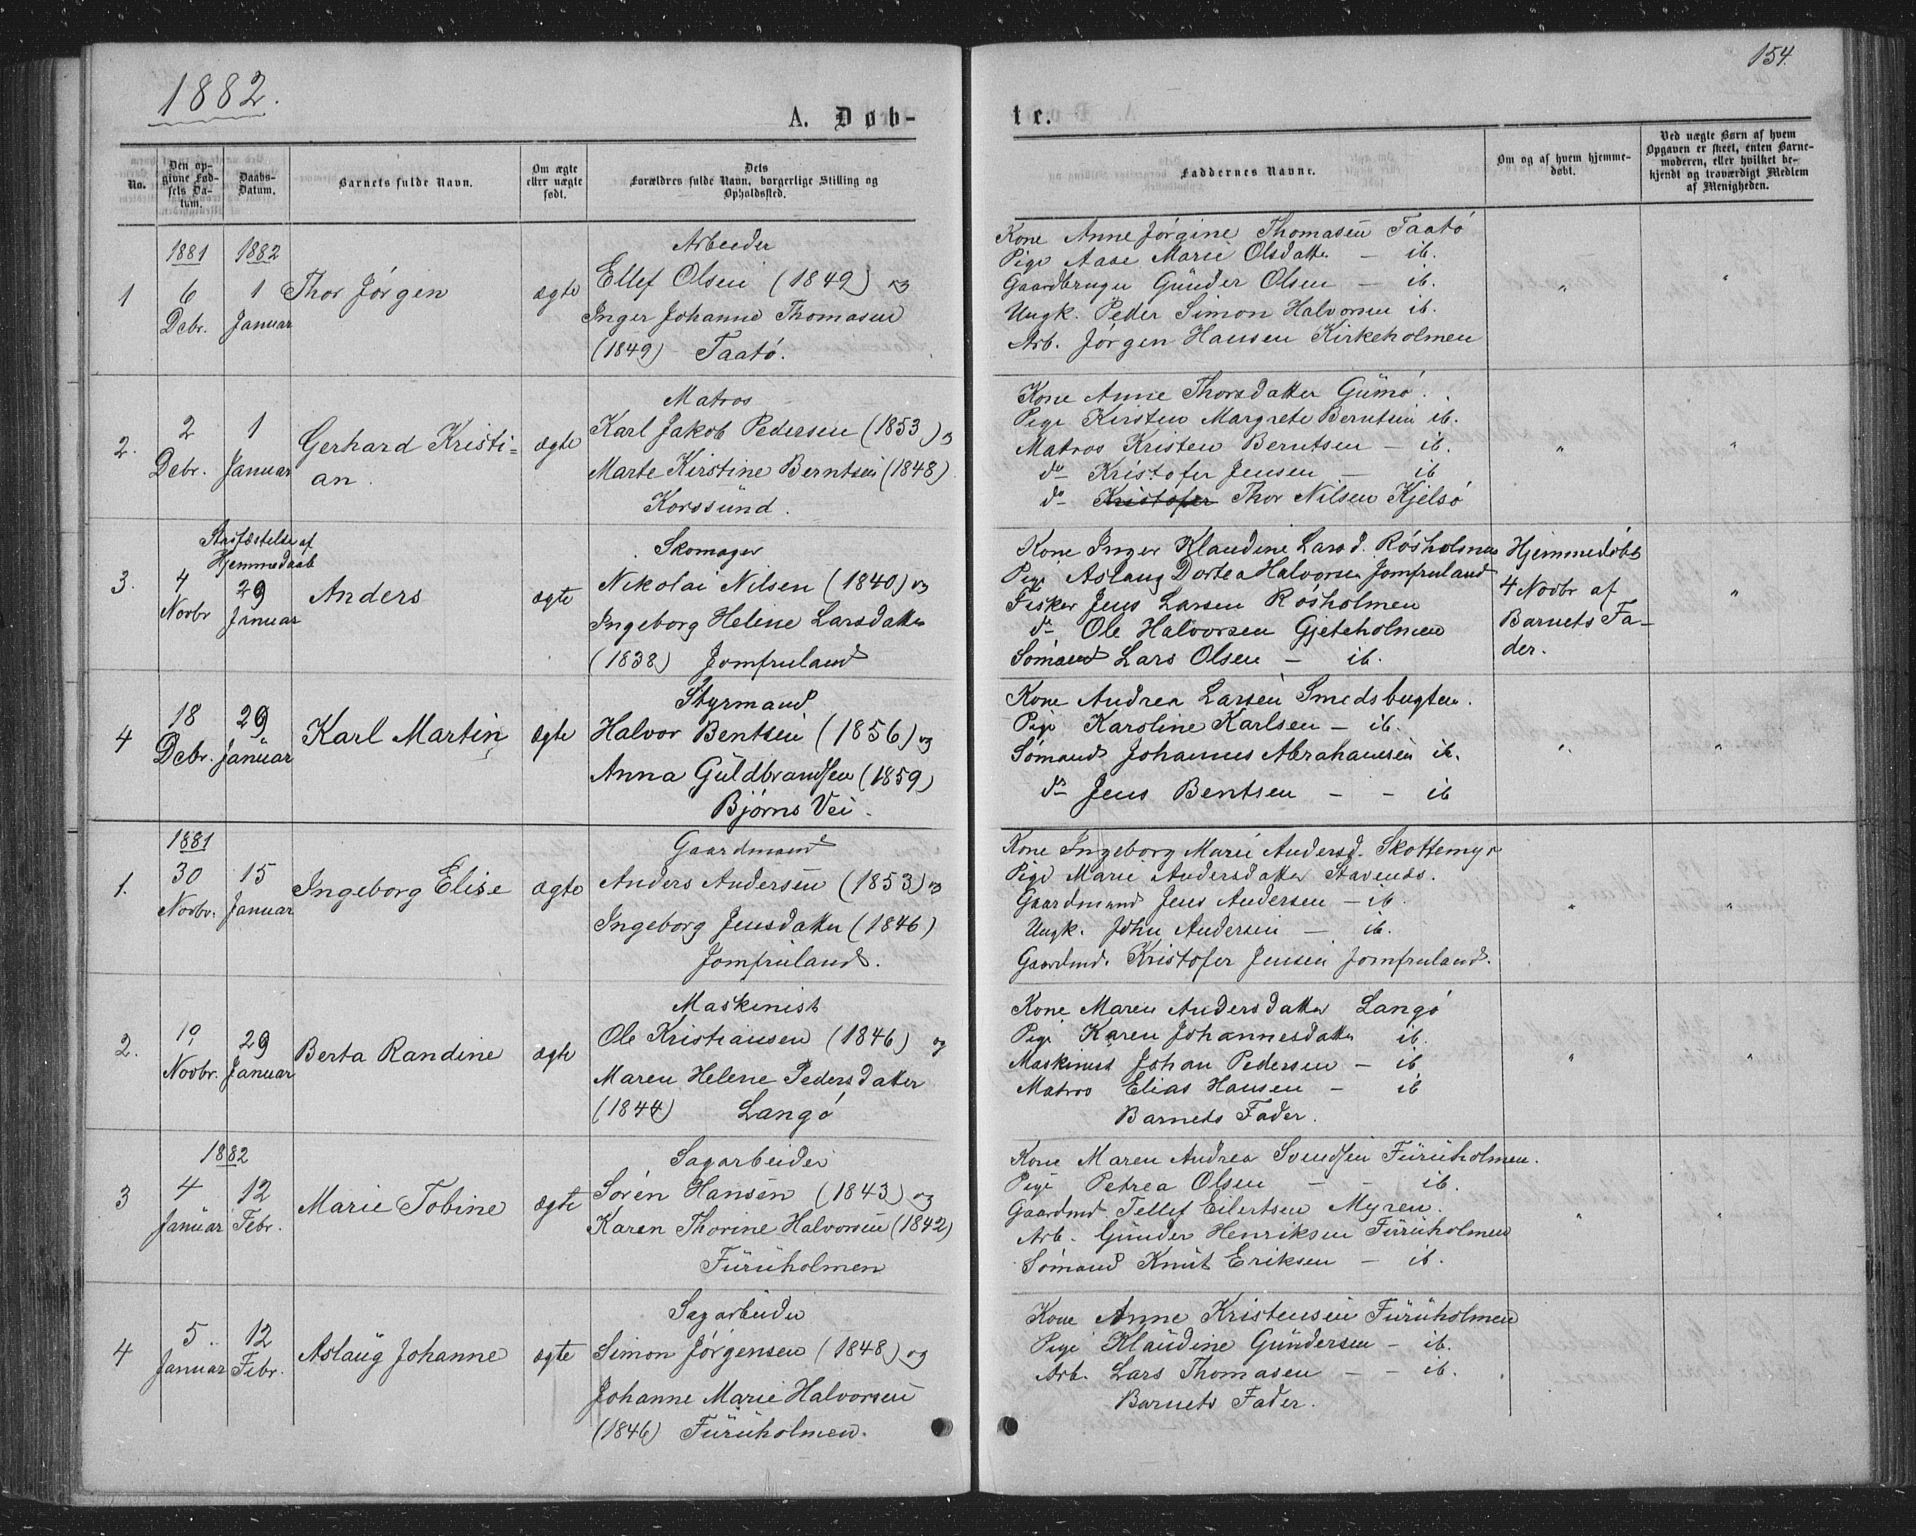 1882.
154.
A. Døb-
te.
No.
Den op-
givne Fød-
sels Da-
tum.
Daabs-
Datum.
Barnets fulde Navn.
Om ægte
eller uægte
født.
Dets
Forældres fulde Navn, borgerlige Stilling og
Opholdssted.
Faddernes Navne.
Om og af hvem hjemme-
døbt.
Ved uægte Børn af hvem
Opgaven er skeet, enten Barne-
moderen, eller hvilket be-
kjendt og troværdigt Medlem
af Menigheden.
1881 1882
1
6
Debr.
1
Januar
Thor Jørgen
ægte
Arbeider
Ellef Olsen (1849) og
Inger Johanne Thomasen
(1849) Taatø.
Kone Anne Jørgine Thomasen Taatø
Pige Aase Marie Olsdatter — ib.
Gaardbruger Gunder Olsen — ib.
Ungk. Peder Simon Halvorsen ib.
Arb. Jørgen Hansen Kirkeholmen
" "
2.
2
Debr.
1
Januar
Gerhard Kristi-
an.
ægte
Matros
Karl Jakob Pedersen (1853) og
Marte Kirstine Berntsen (1848)
Korssund.
Kone Anne Thorsdatter Gumø.
Pige Kirsten Margrete Berntsen ib.
Matros Kristen Berntsen — ib.
do Kristofer Jensen — ib
do Kristofer Thor Nilsen Kjelsø
" "
3.
Stadfæstelse af
Hjemmedaab
4
Novbr
29
Januar
Anders
ægte
Skomager
Nikolai Nilsen (1840) og
Ingeborg Helene Larsdatter
(1838) Jomfruland
Kone Inger Klaudine Larsd. Røsholmen
Pige Aslaug Dortea Halvorsen Jomfruland
Fisker Jens Larsen Røsholmen
do Ole Halvorsen Gjeteholmen
Sømand Lars Olsen — ib.
Hjemmedøbt
4 Novbr af
Barnets Fa-
der.
"
4
18
Debr.
29
Januar
Karl Martin
ægte
Styrmand
Halvor Bentsen (1856) og
Anna Guldbrandsen (1859)
Bjørns Vei.
Kone Andrea Larsen Smedsbugten.
Pige Karoline Karlsen — ib.
Sømand Johannes Abrahamsen ib.
do Jens Bentsen — — ib
" "
1881
1.
30
Novbr.
15
Januar
Ingeborg Elise
ægte
Gaardmand
Anders Andersen (1853) og
Ingeborg Jensdatter (1846)
Jomfruland.
Kone Ingeborg Marie Andersd. Skottemyr
Pige Marie Andersdatter Stavenæs.
Gaardmand Jens Andersen — ib.
Ungk. John Andersen — ib.
Gaardmd. Kristofer Jensen Jomfruland.
" "
2.
19
Novbr.
29
Januar
Berta Randine
ægte
Maskinist
Ole Kristiansen (1846) og
Maren Helene Pedersdatter
(1844) Langø
Kone Maren Andersdatter Langø
Pige Karen Johannesdatter ib.
Maskinist Johan Pedersen — ib
Matros Elias Hansen — ib
Barnets Fader.
" "
1882
3
4
Januar
12
Febr.
Marie Tobine
ægte
Sagarbeider
Søren Hansen (1843) og
Karen Thorine Halvorsen (1842)
Furuholmen
Kone Maren Andrea Svendsen Furuholmen.
Pige Petrea Olsen — — ib.
Gaardmd. Tellef Eilertsen Myren.
Arb. Gunder Henriksen Furuholmen
Sømand Knut Eriksen — ib.
" "
4
5.
Januar
12
Febr.
Aslaug Johanne
ægte
Sagarbeider
Simon Jørgensen (1848) og
Johanne Marie Halvorsen
(1846) Furuholmen.
Kone Anne Kristensen Furuholmen
Pige Klaudine Gundersen — ib.
Arb. Lars Thomasen — — ib.
Barnets Fader.